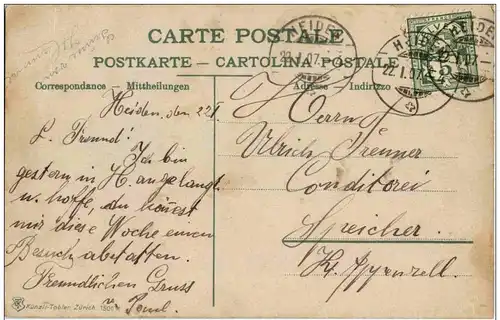 CARTE POSTALE
POSTKARTE – CARTOLINA POSTALE
Correspondance - Mittheilungen
Adresse - Indirizzo
HEIDEN
22.I.07
HEIDEN
22.I.07
HEIDEN
Heiden den 22 I.
L. Freund!
Ich bin
gestern in H. angelangt
u. hoffe, du könnest
mir diese Woche einen
Besuch abstatten.
Freundlichen Gruss
Herrn
Ulrich
Conditorei
Speicher.
Kt. Appenzell.
Künzli-Tobler, Zürich